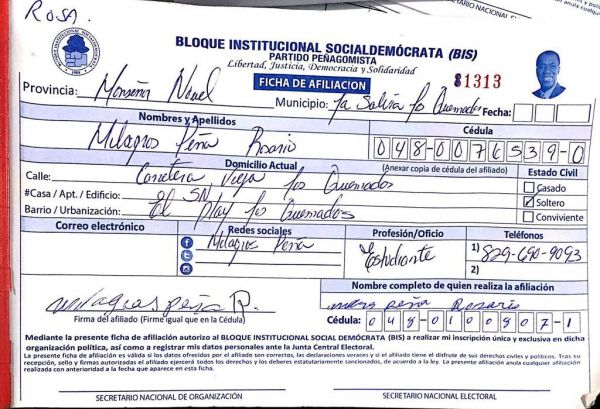 SECRETARIO NACIONAL E
ROSA.
BLOQUE INSTITUCIONAL SOCIALDEMÓCRATA
1989
BLOQUE INSTITUCIONAL SOCIALDEMÓCRATA (BIS)
PARTIDO PEÑAGOMISTA
Libertad, Justicia, Democracia y Solidaridad
FICHA DE AFILIACION
31313
Provincia: Monseñor Nouel Municipio: La Salvia Los Quemados Fecha:
Nombres y Apellidos Cédula
Milagros Peña Rosario 048-0076539-0
Domicilio Actual (Anexar copia de cédula del afiliado) Estado Civil
Calle: Carretera Vieja Los Quemados Casado
#Casa / Apt. / Edificio: SN Soltero
Barrio / Urbanización: El Play Los Quemados Conviviente
Correo electrónico Redes sociales Profesión/Oficio Teléfonos
Milagros Peña Estudiante 1) 829-690-9093
2)
Nombre completo de quien realiza la afiliación
milagros peña R. peña Rosario
Firma del afiliado (Firme igual que en la Cédula) Cédula: 048-0100907-1
Mediante la presente ficha de afiliación autorizo al BLOQUE INSTITUCIONAL SOCIAL DEMÓCRATA (BIS) a realizar mi inscripción única y exclusiva en dicha
organización política, así como a registrar mis datos personales ante la Junta Central Electoral.
La presente ficha de afiliación es válida si los datos ofrecidos por el afiliado son correctos, las declaraciones veraces y si el afiliado tiene el disfrute de sus derechos civiles y políticos. Tras su
recepción, sello y firmas autorizadas el afiliado ejercerá todos los derechos y los deberes estatutariamente sancionados, de acuerdo a la ley. La presente afiliación anula cualquier afiliación
realizada con anterioridad a la fecha que aparece en esta ficha.
SECRETARIO NACIONAL DE ORGANIZACIÓN SECRETARIO NACIONAL ELECTORAL